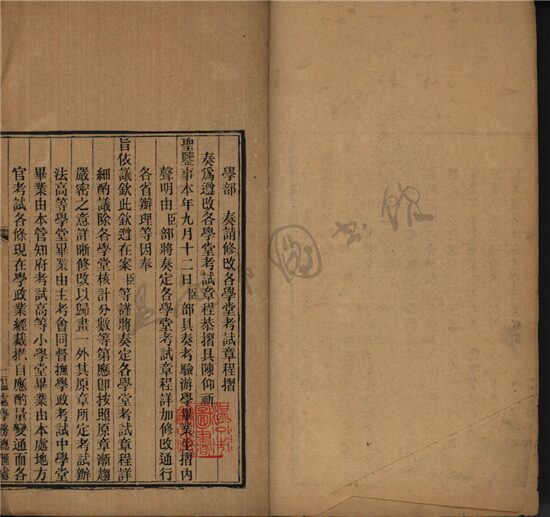 學部　奏請修改各學堂考試章程摺
奏爲遵改各學堂考試章程恭摺具陳仰祈
聖鑒事本年九月十二日臣部具奏考驗游學畢業生摺內
聲明由臣部將奏定各學堂考試章程詳加修改通行
各省辦理等因奉
旨依議欽此欽遵在案臣等謹將奏定各學堂考試章程詳
細酌議除各學堂核計分數等第應卽按照原章漸趨
嚴密之意詳晰修改以歸畫一外其原章所定考試辦
法高等學堂畢業由主考會同督撫學政考試中學堂
畢業由本管知府考試高等小學堂畢業由本處地方
官考試各條現在學政業經裁撤自應酌量變通而各
一　溫處學務總匯處
圖書館